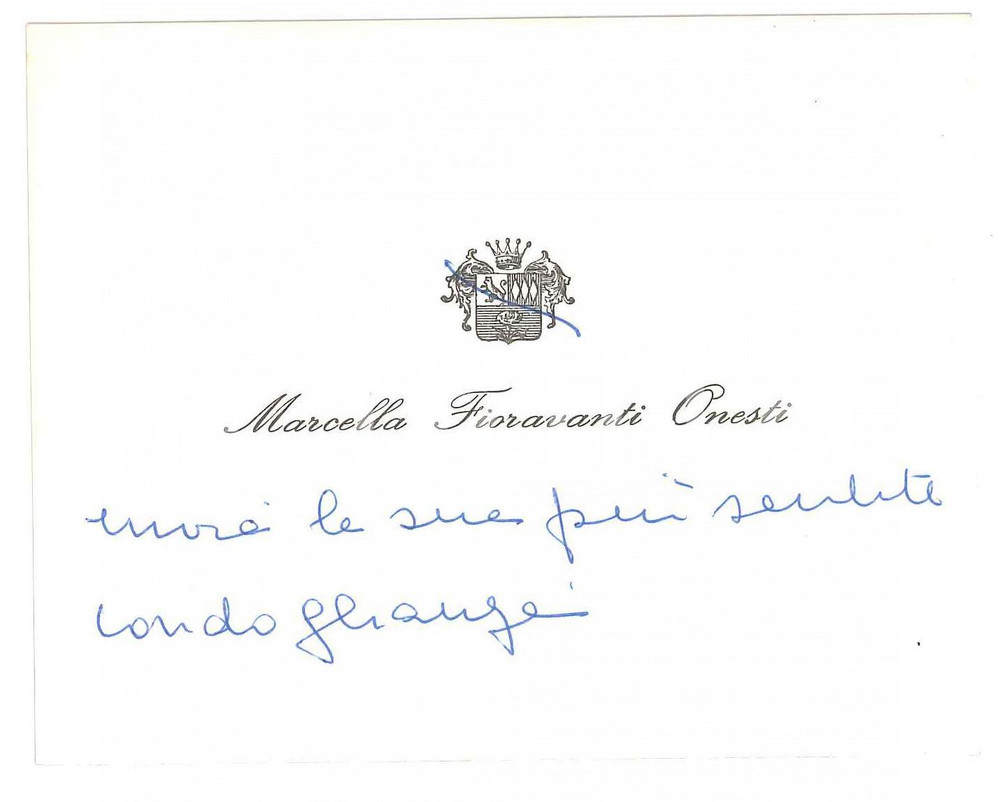 Marcella Fioravanti Onesti
invia le sue più sentite
condoglianze